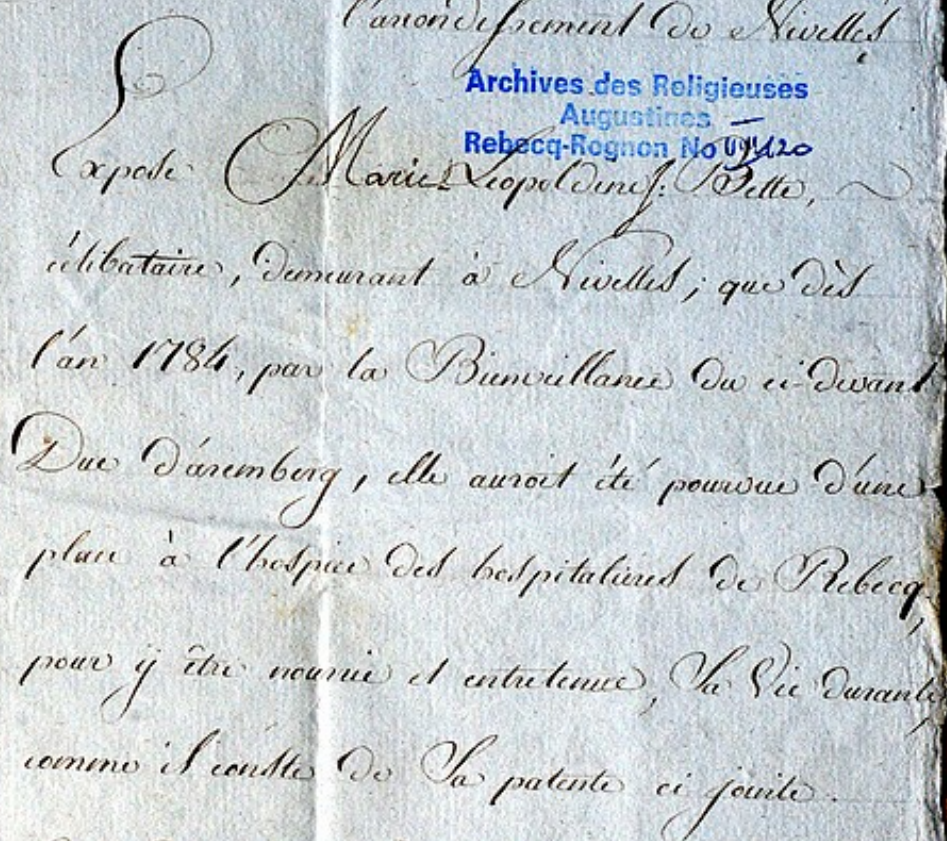 l'arrondissement de Nivelles
Archives des Religieuses
Augustines
Rebecq-Rognon No
Expose Marie Leopoldine J: Bette,
célibataire, demeurant à Nivelles; que dès
l'an 1784, par la Bienveillance du ci-devant
Duc d'aremberg, elle auroit été pourvue d'une
place à l'hospice des hospitalières de Rebecq,
pour ÿ être nourrie et entretenue, Sa Vie durante,
comme il conste de Sa patente ci jointe.